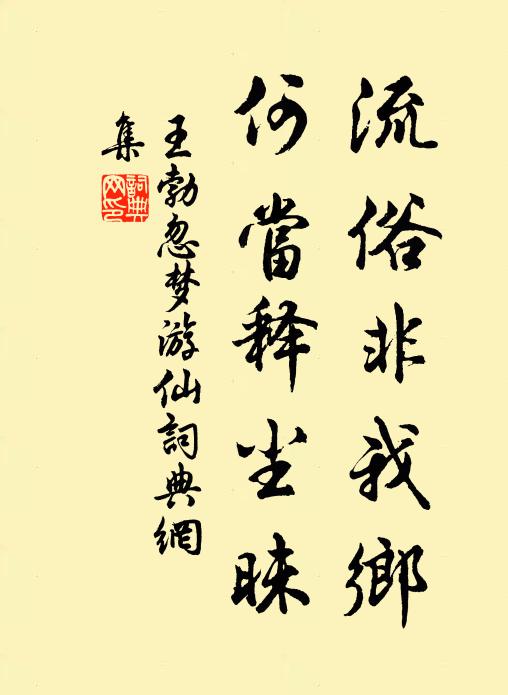 流俗非我鄉
何當释尘昧
王勃忽梦游仙詞典網
集
詞典
网印